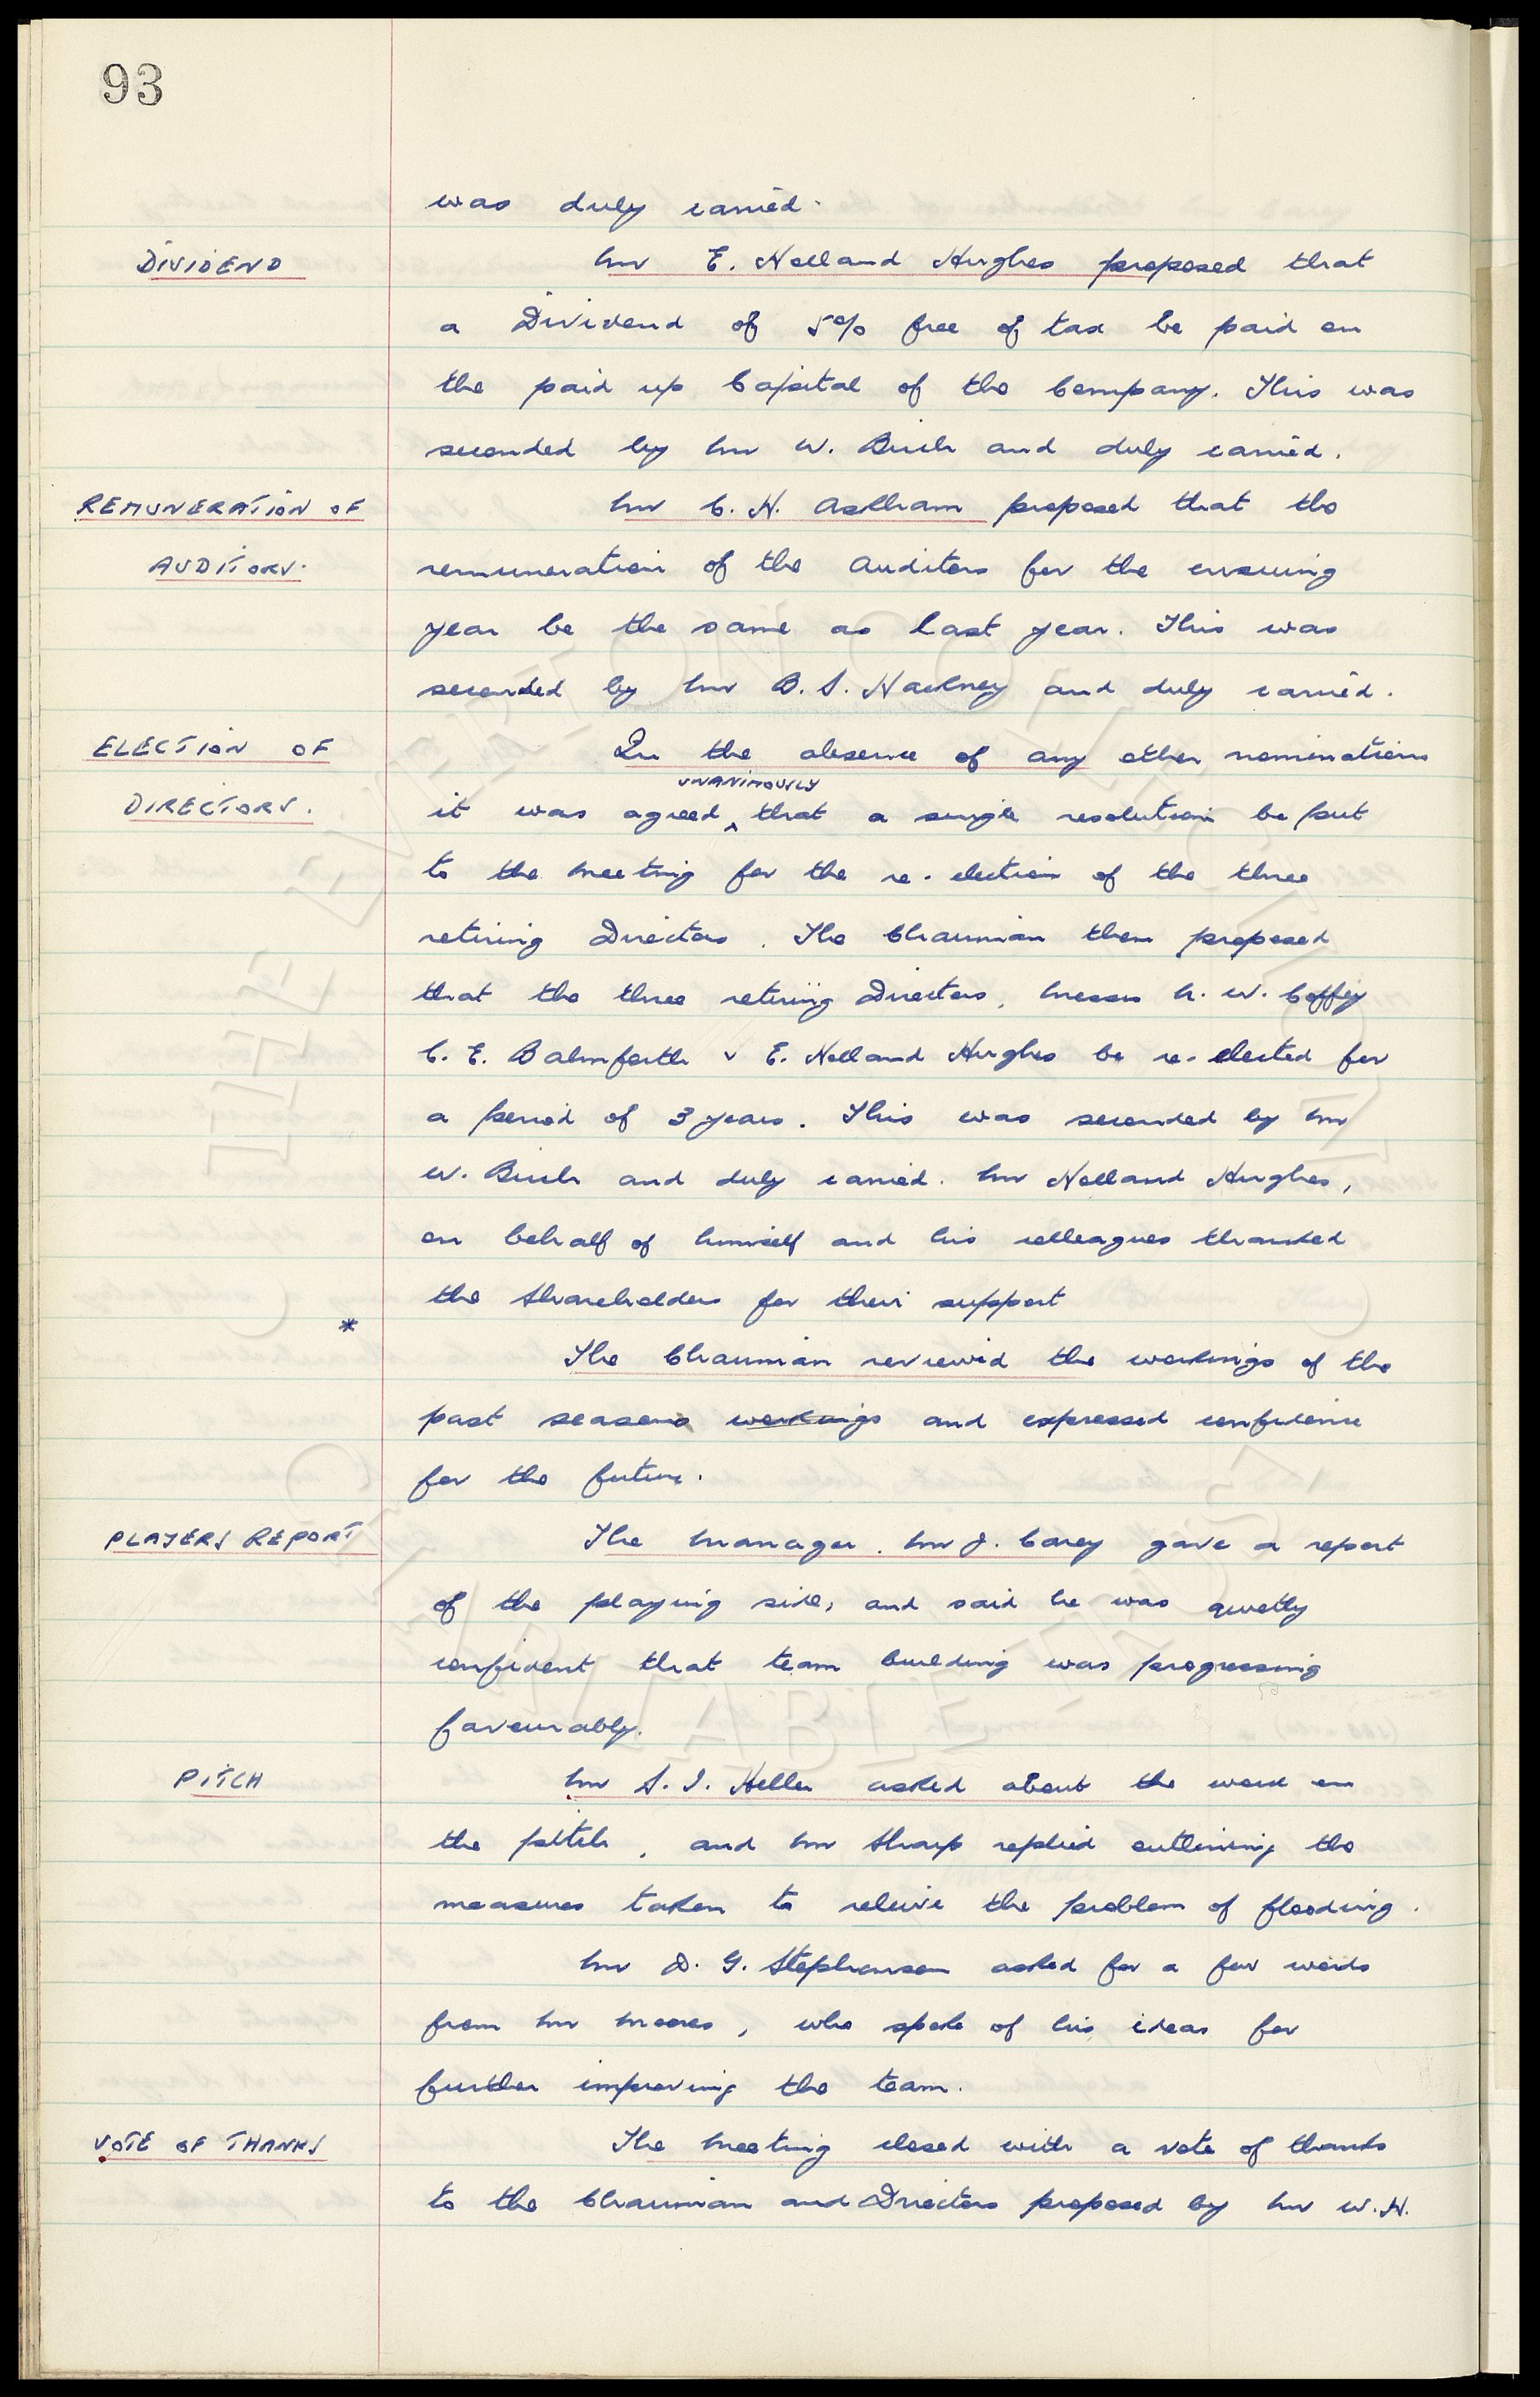 93
was duly carried.
DIVIDEND
Mr E. Holland Hughes proposed that
a Dividend of 5% free of tax be paid on
the paid up Capital of the Company. This was
seconded by Mr W. Birch and duly carried.
REMUNERATION OF
AUDITORS.
Mr C. H. Askham proposed that the
remuneration of the Auditors for the ensuing
year be the same as last year. This was
seconded by Mr B. S. Hackney and duly carried.
ELECTION OF
DIRECTORS.
In the absence of any other nominations
unanimously
it was agreed ^ that a single resolution be put
to the meeting for the re-election of the three
retiring Directors. The Chairman then proposed
that the three retiring Directors, Messrs N. W. Coffey
C. E. Balmforth & E. Holland Hughes be re-elected for
a period of 3 years. This was seconded by Mr
W. Birch and duly carried. Mr Holland Hughes,
on behalf of himself and his colleagues thanked
the Shareholders for their support
*
The Chairman reviewed the workings of the
past seasons workings and expressed confidence
for the future.
PLAYERS REPORT
The Manager. Mr J. Carey gave a report
of the playing side, and said he was quietly
confident that team building was progressing
favourably.
PITCH
Mr S. I. Heller asked about the work on
the pitch, and Mr Sharp replied outlining the
measures taken to releive the problem of flooding.
Mr D. G. Stephenson asked for a few words
from Mr Moores, who spoke of his ideas for
further improving the team.
VOTE OF THANKS
The meeting closed with a vote of thanks
to the Chairman and Directors proposed by Mr W. H.